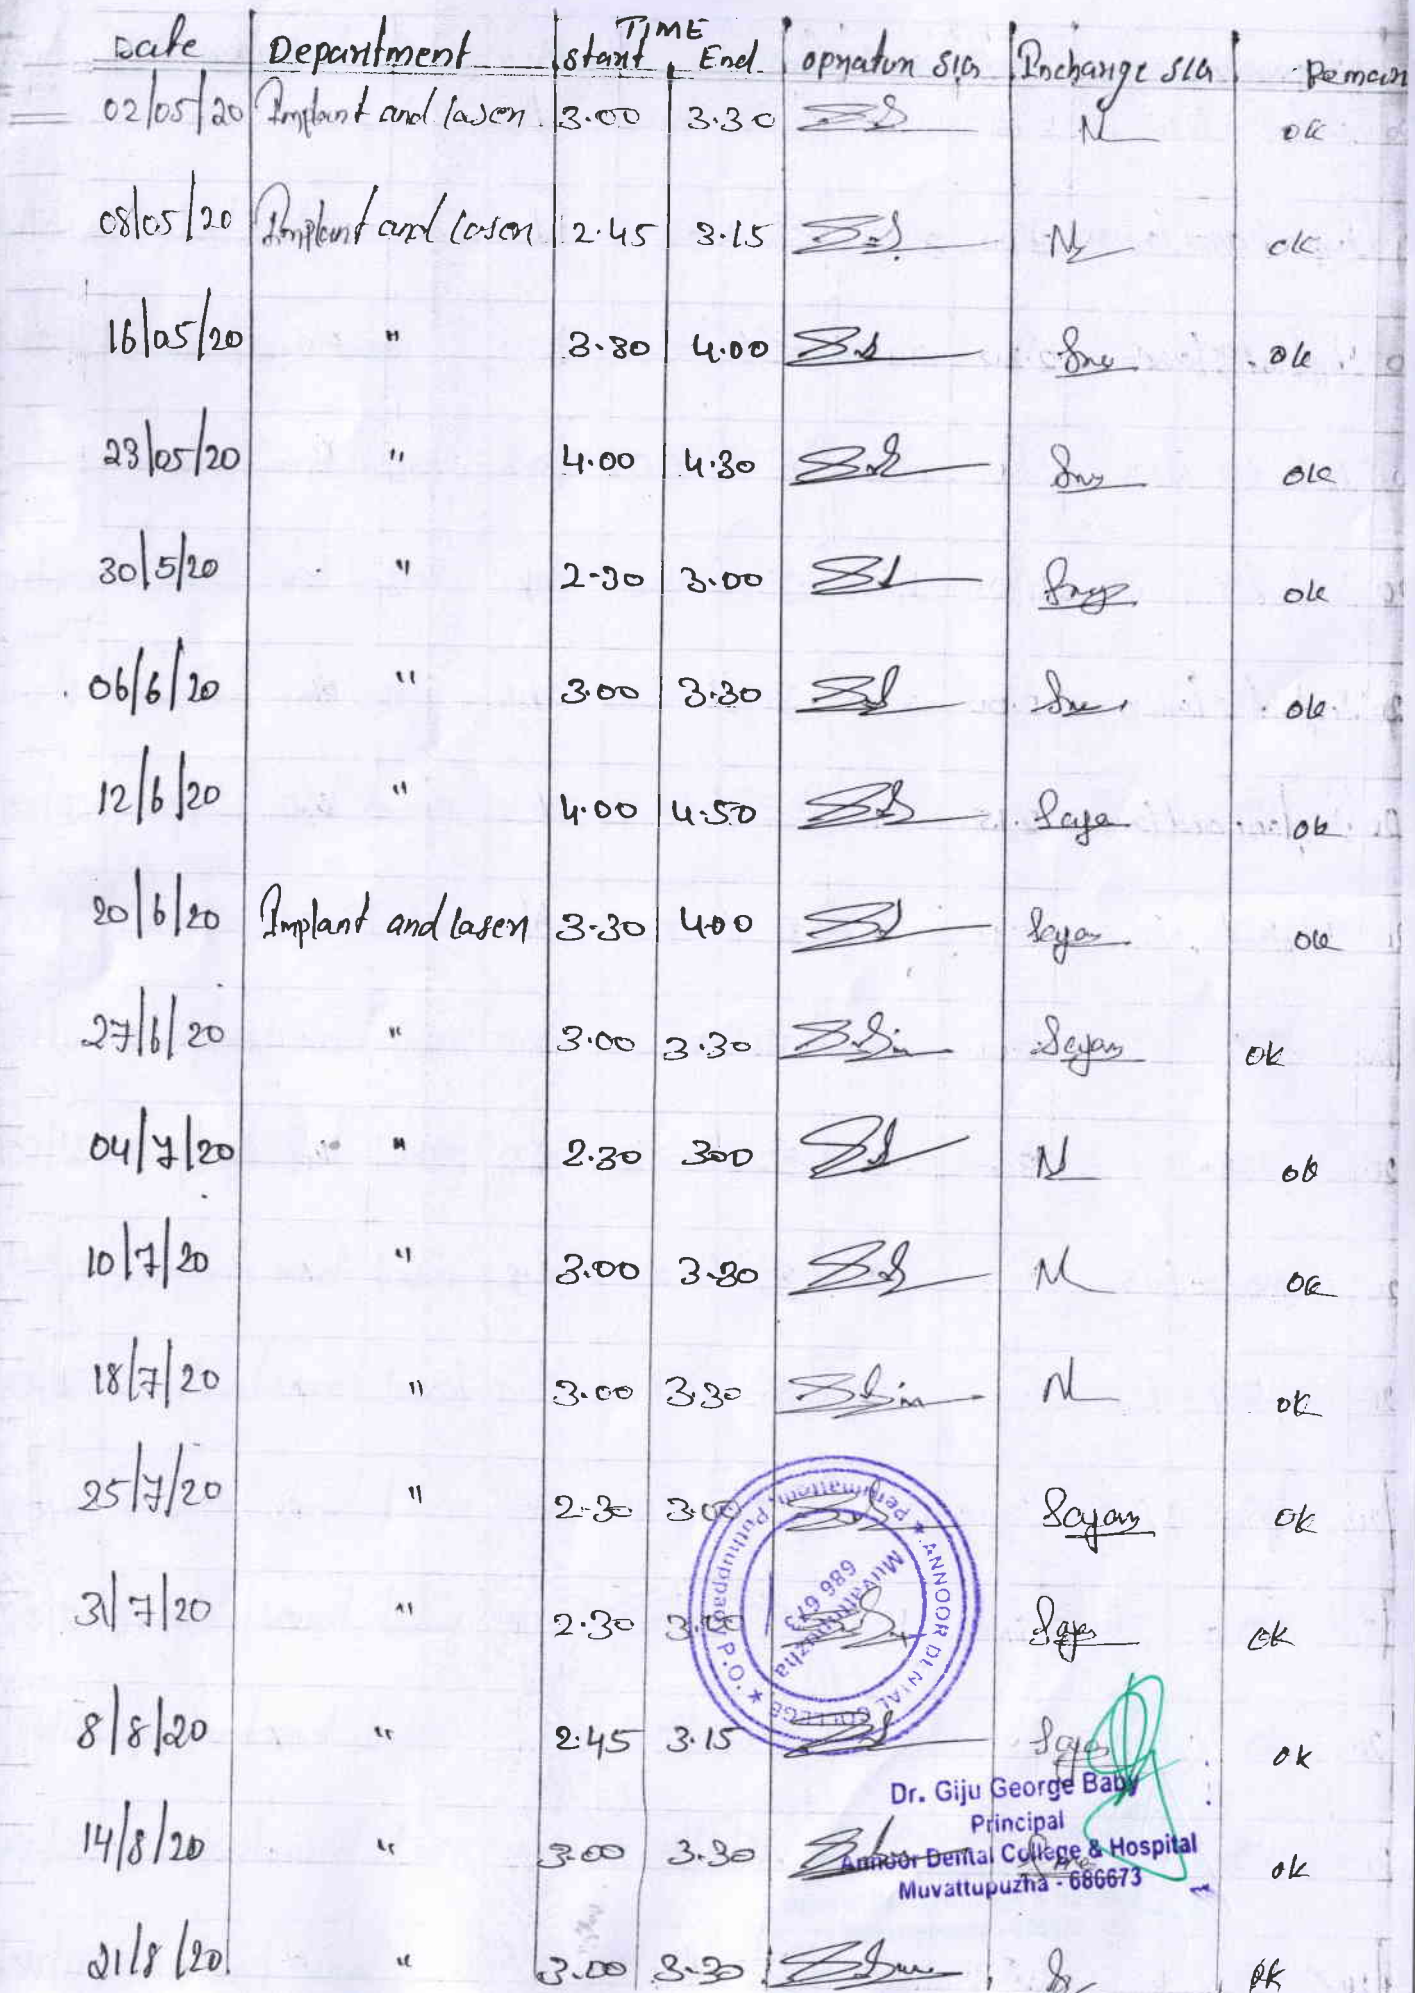 TIME
Date Department Start End opriaton SIG Incharge SIG Remar
02/05/20 Implant and laser 3.00 3.30 ok
08/05/20 Implant and laser 2.45 3.15 ok
16/05/20 " 3.30 4.00 ok
23/05/20 " 4.00 4.30 ok
30/5/20 " 2-30 3.00 ok
06/6/20 " 3.00 3.30 ok
12/6/20 " 4.00 4.50 ok
20/6/20 Implant and laser 3-30 400 ok
27/6/20 " 3.00 3.30 ok
04/7/20 " 2.30 300 ok
10/7/20 " 3.00 3.30 ok
18/7/20 " 3.00 3.30 ok
25/7/20 " 2-30 3.00 ok
31/7/20 " 2.30 3.00 ok
8/8/20 " 2.45 3.15 ok
14/8/20 " 3.00 3.30 ok
21/8/20 " 3.00 3.30 ok
★ ANNOOR DENTAL COLLEGE ★ Perumattom, Puthuppady P.O.
Muvattupuzha
686 673
Dr. Giju George Baby
Principal
Annoor Dental College & Hospital
Muvattupuzha - 686673